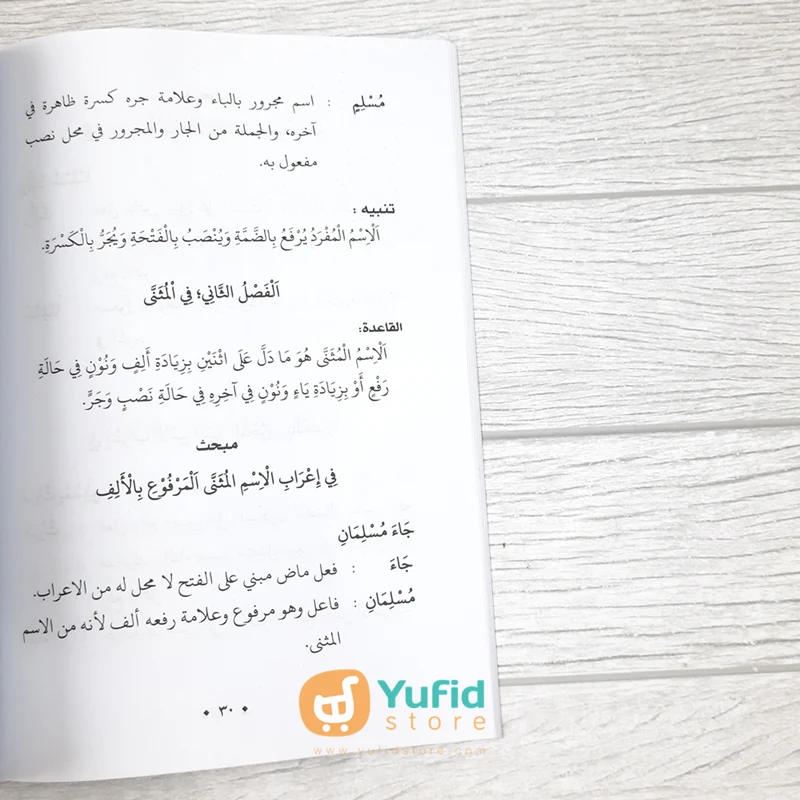 مُسْلِمٍ : اسم مجرور بالباء وعلامة جره كسرة ظاهرة في
آخره، والجملة من الجار والمجرور في محل نصب
مفعول به.
تنبيه :
اَلْاِسْمُ الْمُفْرَدُ يُرْفَعُ بِالضَّمَّةِ وَيُنْصَبُ بِالْفَتْحَةِ وَيُجَرُّ بِالْكَسْرَةِ.
اَلْفَصْلُ الثَّانِي؛ فِي الْمُثَنَّى
القاعدة:
اَلْاِسْمُ الْمُثَنَّى هُوَ مَا دَلَّ عَلَى اثْنَيْنِ بِزِيَادَةِ أَلِفٍ وَنُوْنٍ فِي حَالَةِ
رَفْعٍ أَوْ بِزِيَادَةِ يَاءٍ وَنُوْنٍ فِي آخِرِهِ فِي حَالَةِ نَصْبٍ وَجَرٍّ.
مبحث
فِي إِعْرَابِ الْاِسْمِ الْمُثَنَّى اَلْمَرْفُوْعِ بِالْأَلِفِ
جَاءَ مُسْلِمَانِ
جَاءَ : فعل ماض مبني على الفتح لا محل له من الاعراب.
مُسْلِمَانِ : فاعل وهو مرفوع وعلامة رفعه ألف لأنه من الاسم
المثنى.
٣٠
Yufid
store
www.yufidstore.com